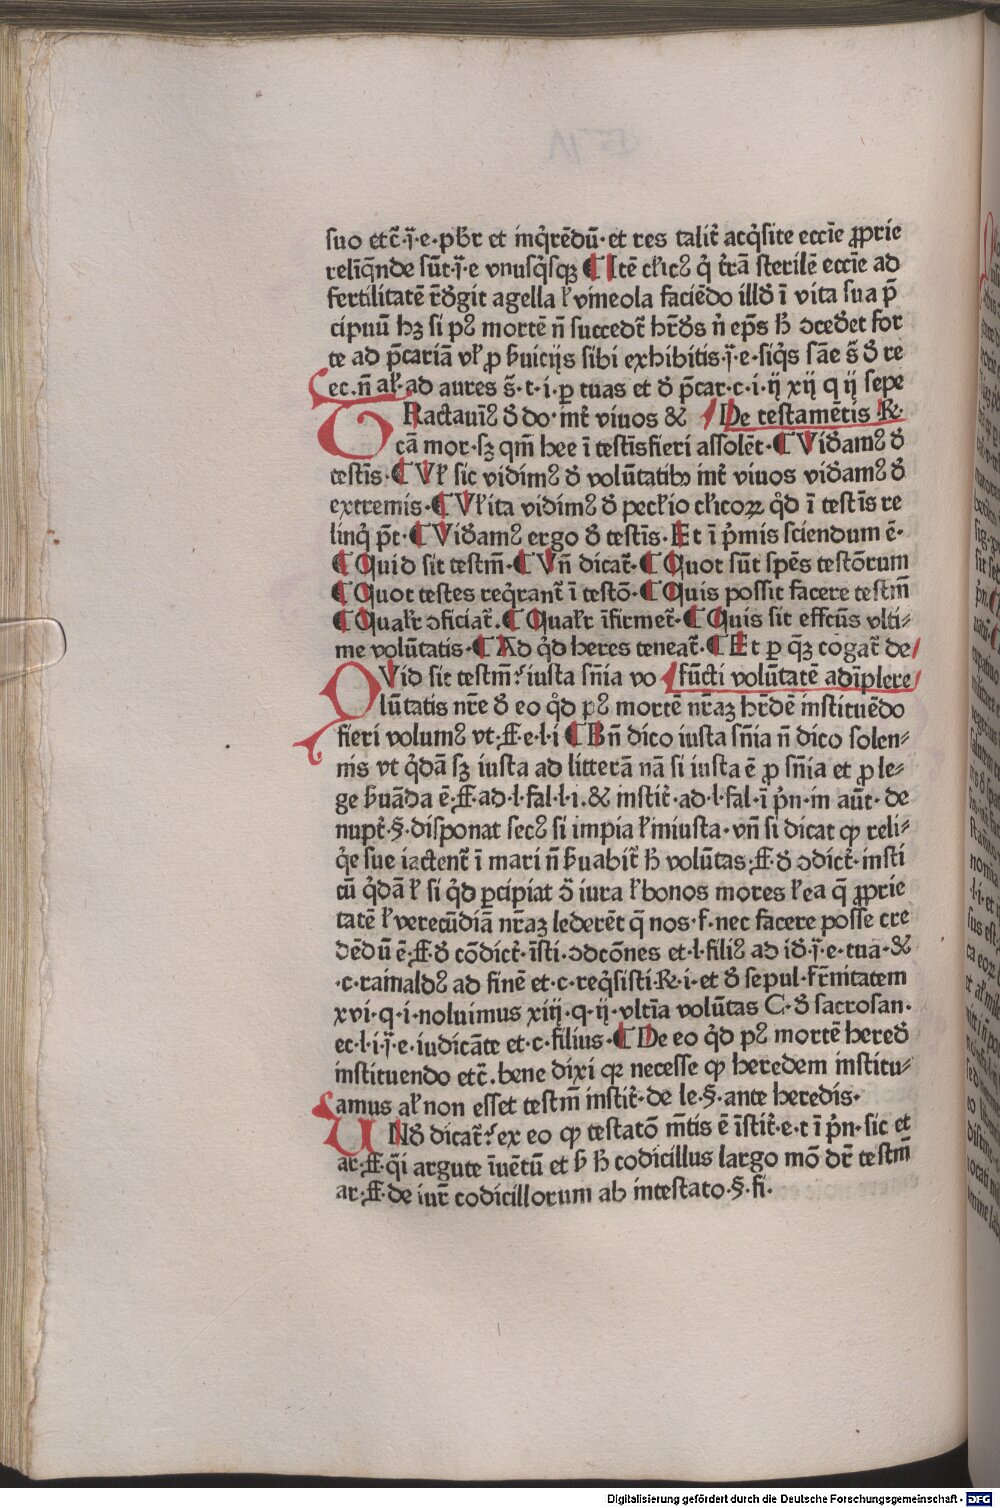 suo etc̄·q̄·e·pb̄r et inq̇rēdū·et res talit̄ acq̇site eccīe ꝓprie
relīq̄nde sūt·q̄·e vnusq̇sqꝫ ¶ Itē cl̄icꝰ q̇ t̄rā sterilē eccīe ad
fertilitatē r̄d̄git agella ł vineola faciēdo illd̄ ī vita sua p̄
cipuū hꝫ si pꝰ mortē n̄ succedt̄ hr̄d̄s n̄ ep̄s h̄ ɔced̄et for
te ad p̄cariā vł ꝓ ẜuicijs sibi exhibitis·q̄·e·siq̇s sāe s̄ d̄ re
ec·n̄ ał·ad aures s̄·t·i·ꝑ tuas et d̄ p̄car·c·i·ij xij q ij sepe
TRactauīꝰ d̄ do·int̄ viuos & De testamētis·R·
cā mor·sꝫ qm̄ hee ī testīs fieri assolēt·¶ Vid̄amꝰ d̄
testīs·¶ Vł sic vidimꝰ d̄ volūtatibꝰ int̄ viuos vid̄amꝰ d̄
extremis·¶ Vł ita vidimꝰ d̄ pecł̄io cł̄icoꝝ q̇d ī testīs re
linq̇ p̄t·¶ Vid̄amꝰ ergo d̄ testīs·Et ī p̄mis sciendum ē·
¶ Quid sit testm̄·¶ Vn̄ dicat̄·¶ Quot sūt sp̄es testōrum
¶ Quot testes req̇rant̄ ī testō·¶ Quis possit facere testm̄
¶ Qualr̄ ɔficiat̄.¶ Qualr̄ īfirmet̄·¶ Quis sit effc̄us vlti-
me volūtatis·¶ Ad q̇d heres teneat̄·¶ Et ꝑ q̄ꝫ cogat̄ de
QVid sit testm̄? iusta sn̄ia vo fūcti volūtatē adīplere
lūtatis nr̄e d̄ eo q̇d pꝰ mortē nr̄aꝫ hr̄dē instituēdo
fieri volumꝰ vt·ff·e·l·i ¶ Bn̄ dico iusta sn̄ia n̄ dico solen-
nis vt q̇dā sꝫ iusta ad litterā nā si iusta ē ꝓ sn̄ia et ꝓ le-
ge ẜuāda ē·ff·ad·l·fal·l·i·& instit̄·ad·l·fal·ī p̄n·in aūt·de
nupt̄·§·disponat secꝰ si impia ł iniusta·vn̄ si dicat ꝙ reli-
q̇e sue iactent̄ ī mari n̄ ẜuabit̄ h̄ volūtas·ff·d̄ ɔdict̄·insti
cū q̇dā ł si q̇d ꝑcipiat ɔ̄ iura ł bonos mores ł ea q̄ ꝓprie
tatē ł verecūdiā nr̄aꝫ lederēt q̄ nos·f·nec facere posse cre
dēdū ē·ff·d̄ cōdict̄·īsti·ɔdcōnes et·l·filiꝰ ad id̄·q̄·e·tua·&
·c·rainaldꝰ ad finē et·c·req̇sisti·R·i·et d̄ sepul·fr̄nitatem
xvi·q·i·noluimus xiij·q·ij·vltīa volūtas C·d̄ sacrosan·
ec·l·i·q̄·e·iudicāte et·c·filius·¶ De eo q̇d pꝰ mortē hered̄
instituendo etc̄.bene dixi qꝛ necesse ꝙ heredem institu-
amus ał non esset testm̄ instit̄·de le·§·ante heredis·
VNd̄ dicat̄? ex eo ꝙ testatō m̄tis ē īstit̄·e·t ī p̄n·sic et
ar·ff·q̄i argute īuētū et ẜ h̄ codicillus largo mō dr̄ testm̄
ar·ff·de iur̄ codicillorum ab intestato·§·fi·
Digitalisierung gefördert durch die Deutsche Forschungsgemeinschaft - DFG